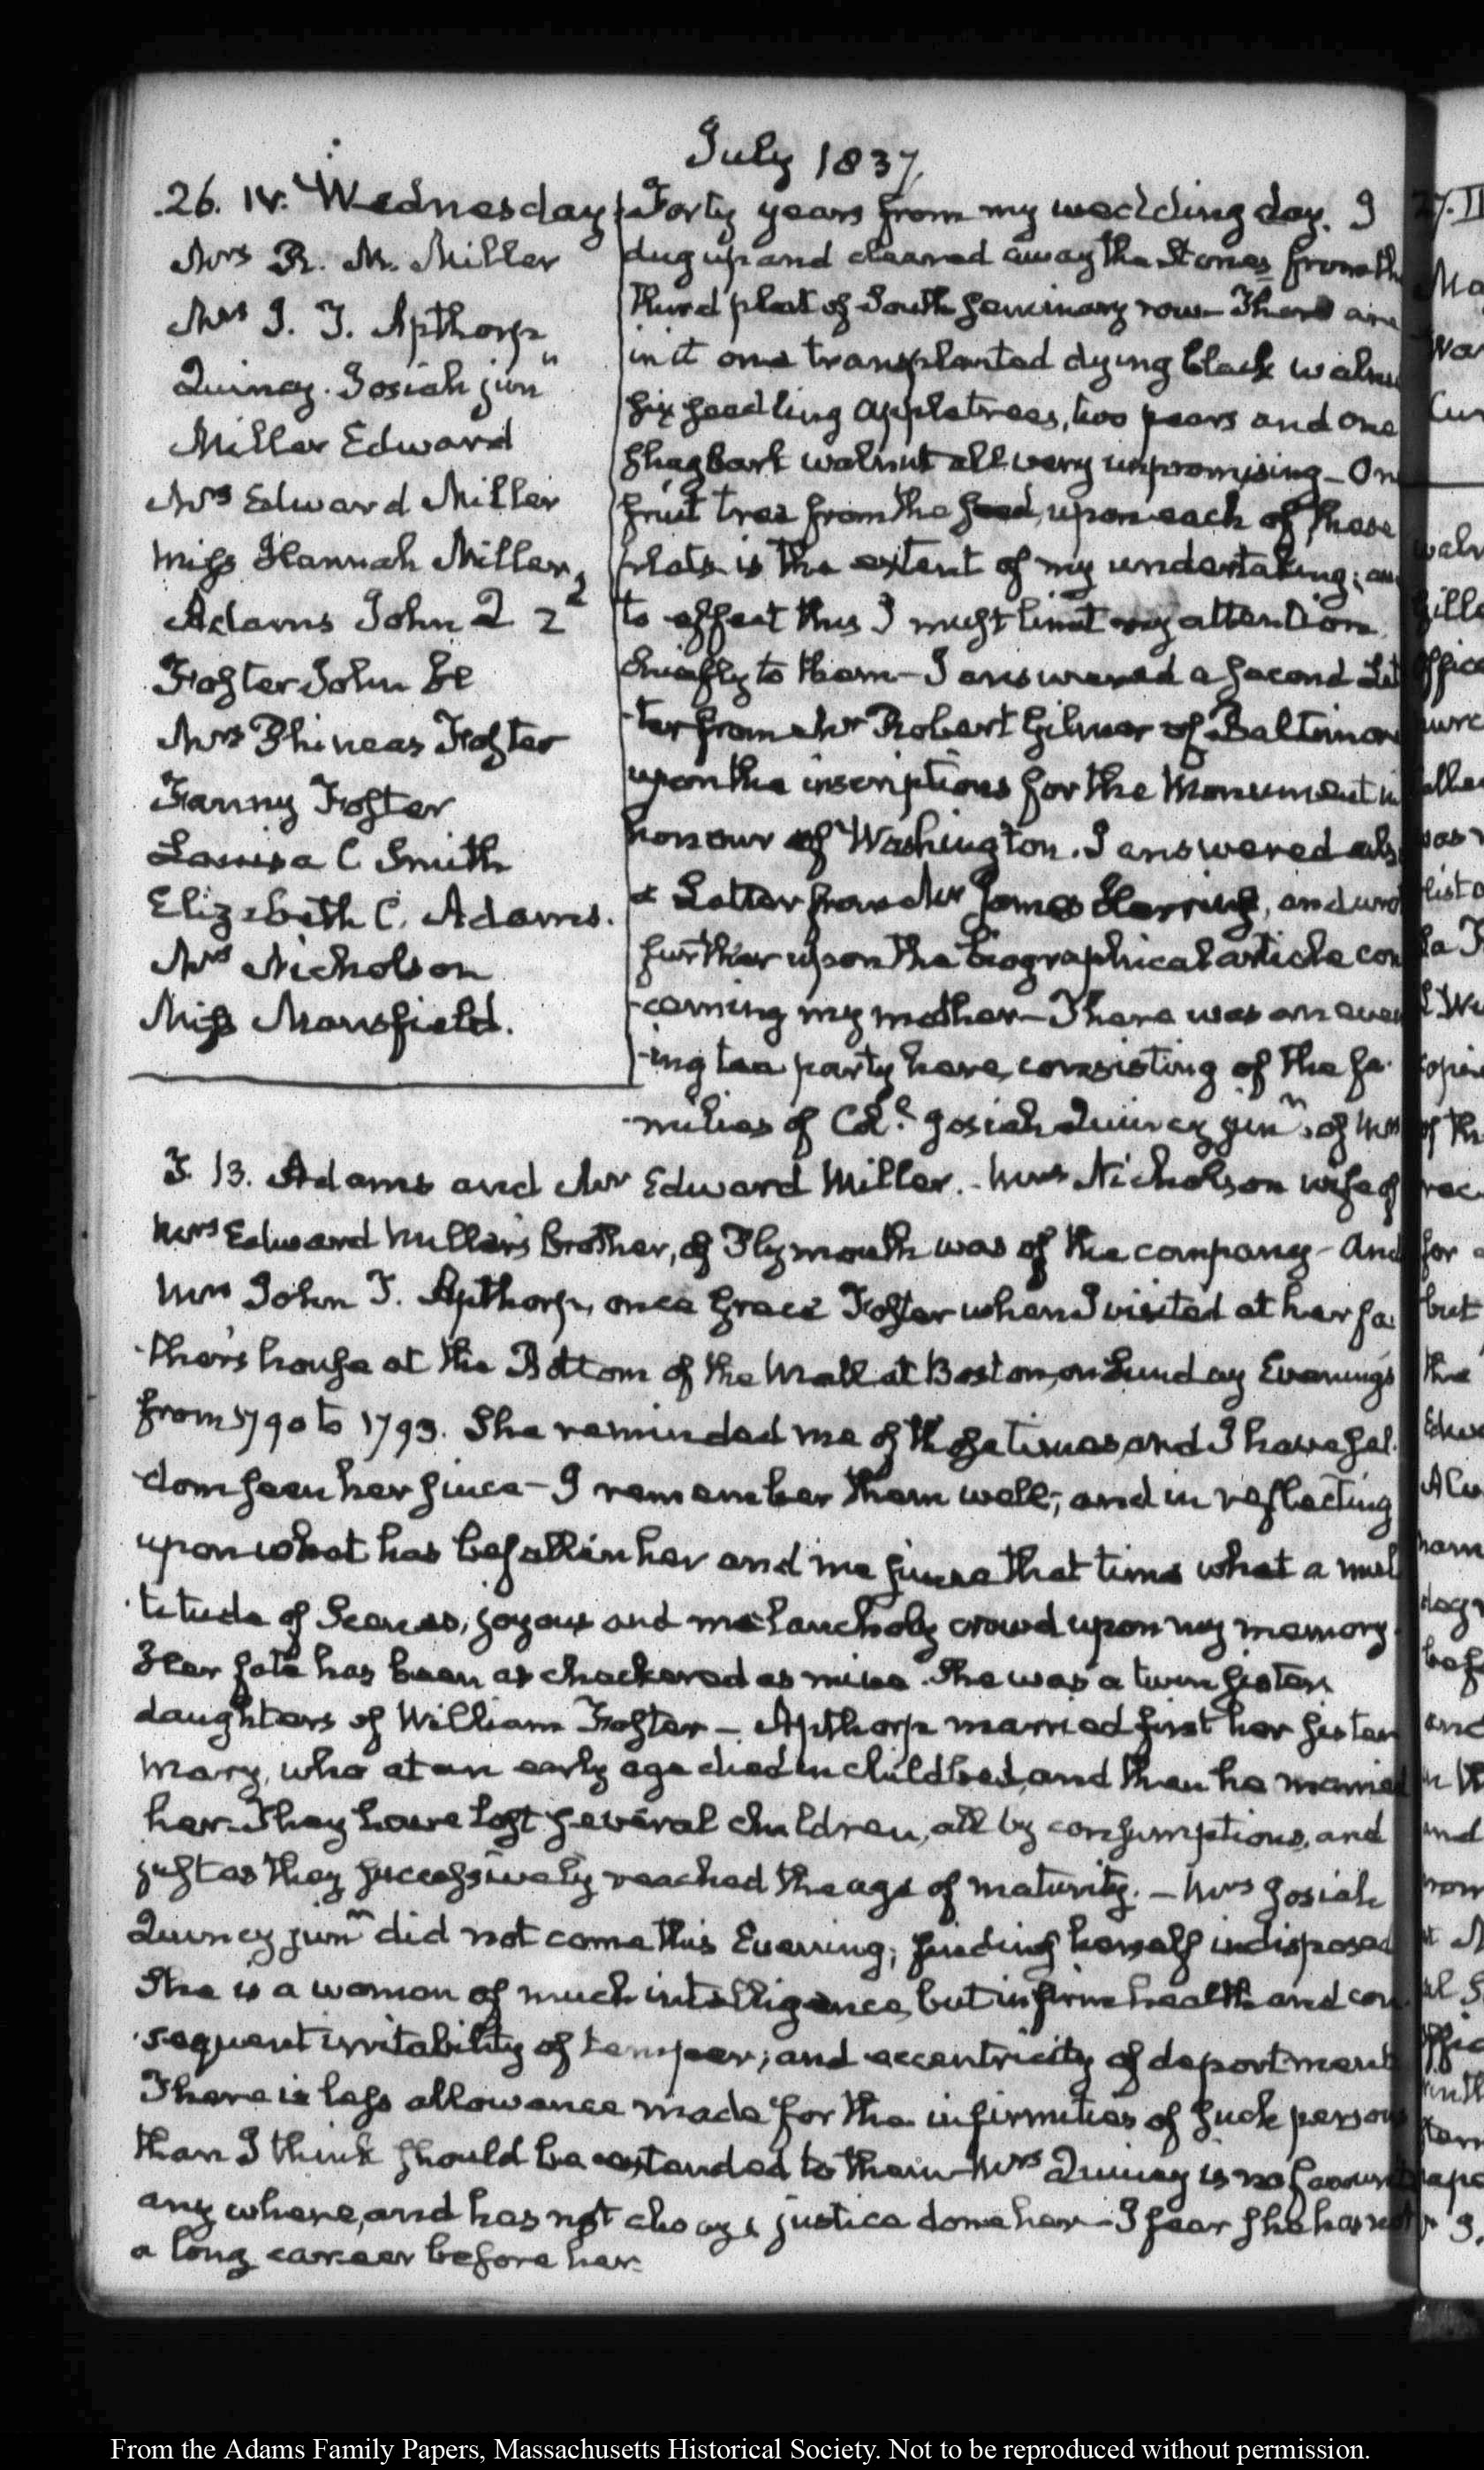 July 1837.
26. IV. Wednesday
Mrs R. M. Miller
Mrs J. T. Apthorp
Quincy. Josiah junr
Miller Edward
Mrs Edward Miller
Miss Hannah Miller
Adams John Q 2d
Foster John H
Mrs Phineas Foster
Fanny Foster
Louisa C Smith
Elizabeth C. Adams.
Mrs Nicholson
Miss Marsfield.
Forty years from my wedding day. I
dug up and cleared away the Stones from th
third plat of South Seminary row — There are
in it one transplanted dying black walnu
six seedling appletrees, two pears and one
shagbark walnut all very unpromising — On
fruit tree from the seed, upon each of these
plats is the extent of my undertaking; an
to effect this I must limit my attention
chiefly to them — I answered a second Let
-ter from Mr Robert Gilmor of Baltimore
upon the inscriptions for the Monument in
honour of Washington. I answered als
a Letter from Mr James Herring, and wro
further upon the biographical article con
-cerning my mother — There was an even
-ing tea party here, consisting of the fa-
-milies of Coll. Josiah Quincy junr, of Mrs
T. B. Adams and Mr Edward Miller. — Mrs Nicholson wife of
Mrs Edward Miller's brother, of Plymouth was of the company — And
Mrs John T. Apthorp, once Grace Foster when I visited at her fa-
-ther's house at the Bottom of the Mall at Boston, on Sunday Evenings
from 1790 to 1793. She reminded me of those times, and I have sel-
-dom seen her since — I remember them well; and in reflecting
upon what has befallen her and me since that time what a mul
-titude of Scenes, joyous and melancholy crowd upon my memory.
Her fate has been as checkered as mine. She was a twin sister,
daughters of William Foster — Apthorp married first her sister
Mary, who at an early age died in childbed, and then he married
her. They have lost several children, all by consumptions, and
just as they successively reached the age of maturity. — Mrs Josiah
Quincy junr did not come this Evening; finding herself indisposed
She is a woman of much intelligence, but infirm health and con-
-sequent irritability of temper; and eccentricity of deportment
There is less allowance made for the infirmities of such persons
than I think should be extended to them — Mrs Quincy is no favourite
any where, and has not always justice done her — I fear she has not
a long career before her.
From the Adams Family Papers, Massachusetts Historical Society. Not to be reproduced without permission.